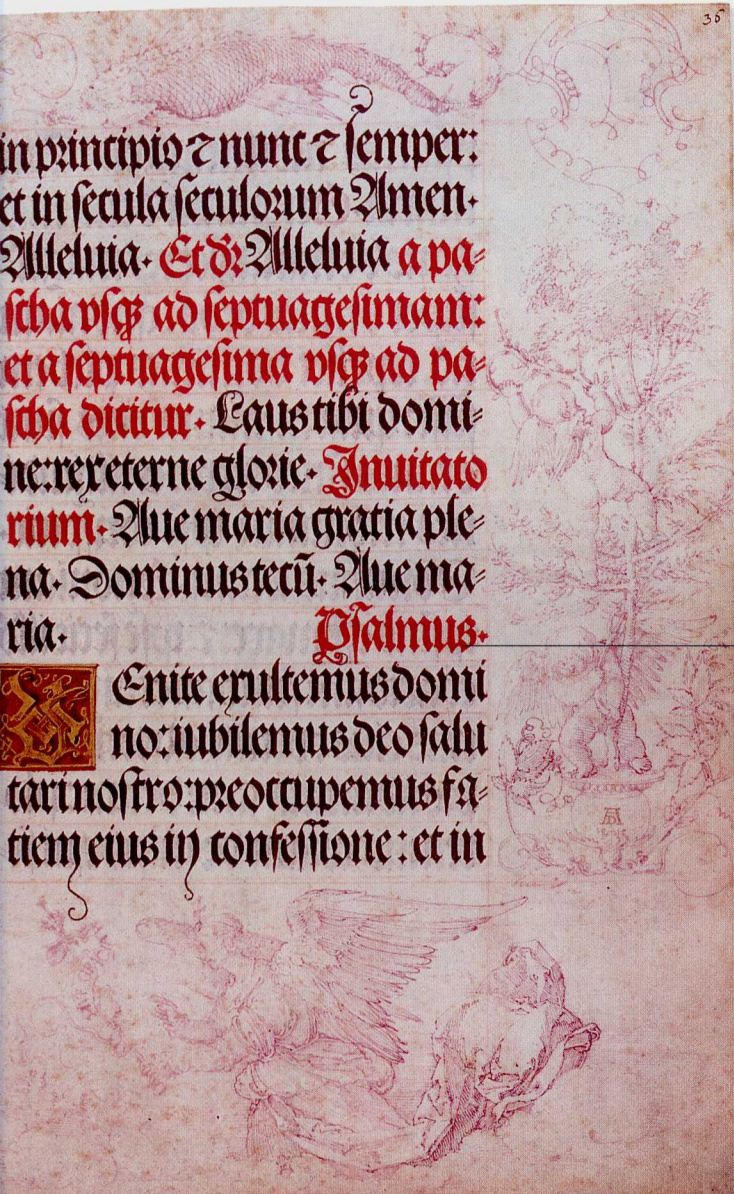 36
in principio ⁊ nunc ⁊ semper:
et in secula seculorum Amen.
Alleluia. Et dr̃ Alleluia a pa⸗
scha vsqꝫ ad septuagesimam:
et a septuagesima vsqꝫ ad pa⸗
scha dicitur. Laus tibi domi⸗
ne: rex eterne glorie. Inuitato
rium. Aue maria gratia ple⸗
na. Dominus tecū. Aue ma⸗
ria. Psalmus.
VEnite exultemus domi
no: iubilemus deo salu
tari nostro: preoccupemus fa⸗
ciem eius in confessione: et in
AD